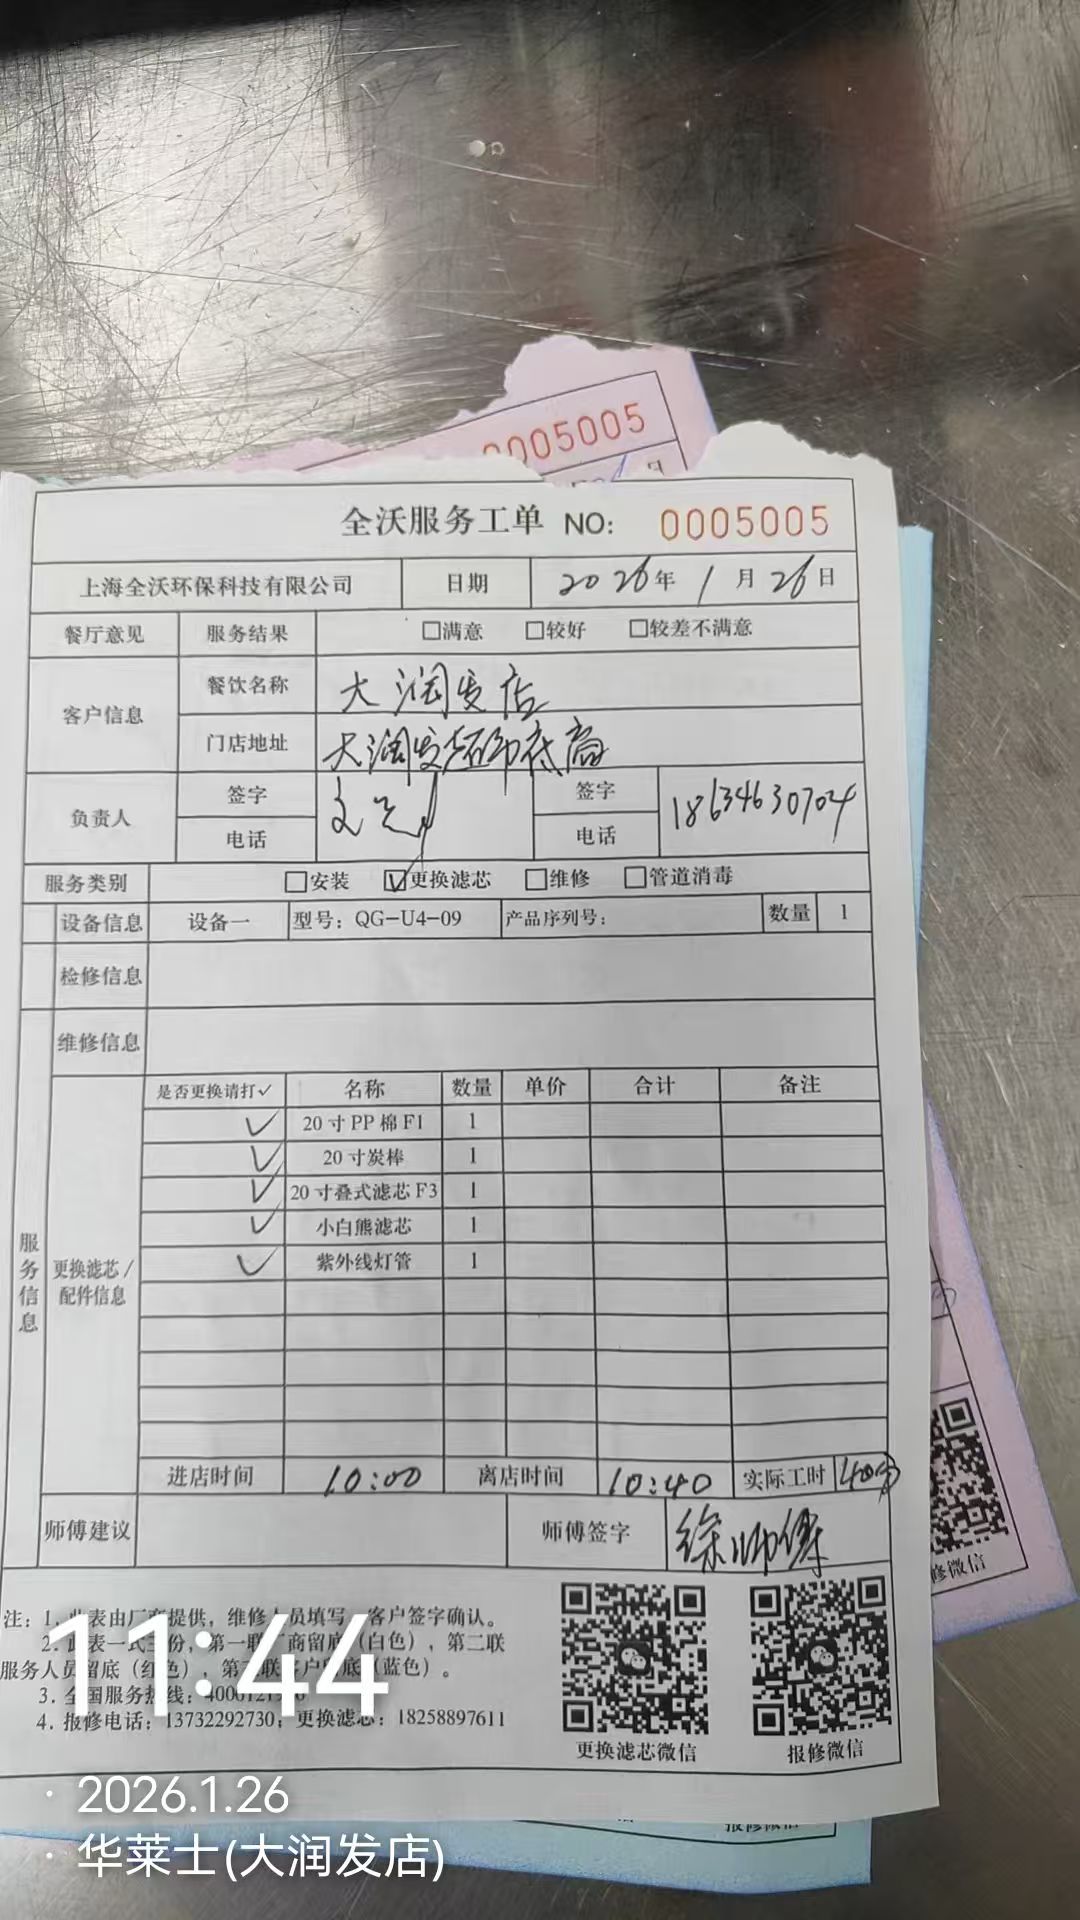 0005005
全沃服务工单 NO: 0005005
上海全沃环保科技有限公司 日期 2026年 1月 26日
餐厅意见 服务结果 □满意 □较好 □较差不满意
客户信息 餐饮名称 大润发店
门店地址 大润发超市底商
负责人 签字 签字
电话 电话 18634630704
服务类别 □安装 ☑更换滤芯 □维修 □管道消毒
设备信息 设备一 型号：QG-U4-09 产品序列号： 数量 1
检修信息
维修信息
服务信息
更换滤芯/配件信息
是否更换请打✓ 名称 数量 单价 合计 备注
✓ 20寸PP棉F1 1
✓ 20寸炭棒 1
✓ 20寸叠式滤芯F3 1
✓ 小白熊滤芯 1
✓ 紫外线灯管 1
进店时间 10:00 离店时间 10:40 实际工时 40分
师傅建议 师傅签字 徐师傅
注：1. 此表由厂商提供，维修人员填写，客户签字确认。
2. 此表一式三份，第一联厂商留底（白色），第二联
服务人员留底（红色），第三联客户留底（蓝色）。
3. 全国服务热线：
4. 报修电话：13732292730；更换滤芯：18258897611
更换滤芯微信 报修微信
修微信
报修微信
11:44
· 2026.1.26
· 华莱士(大润发店)